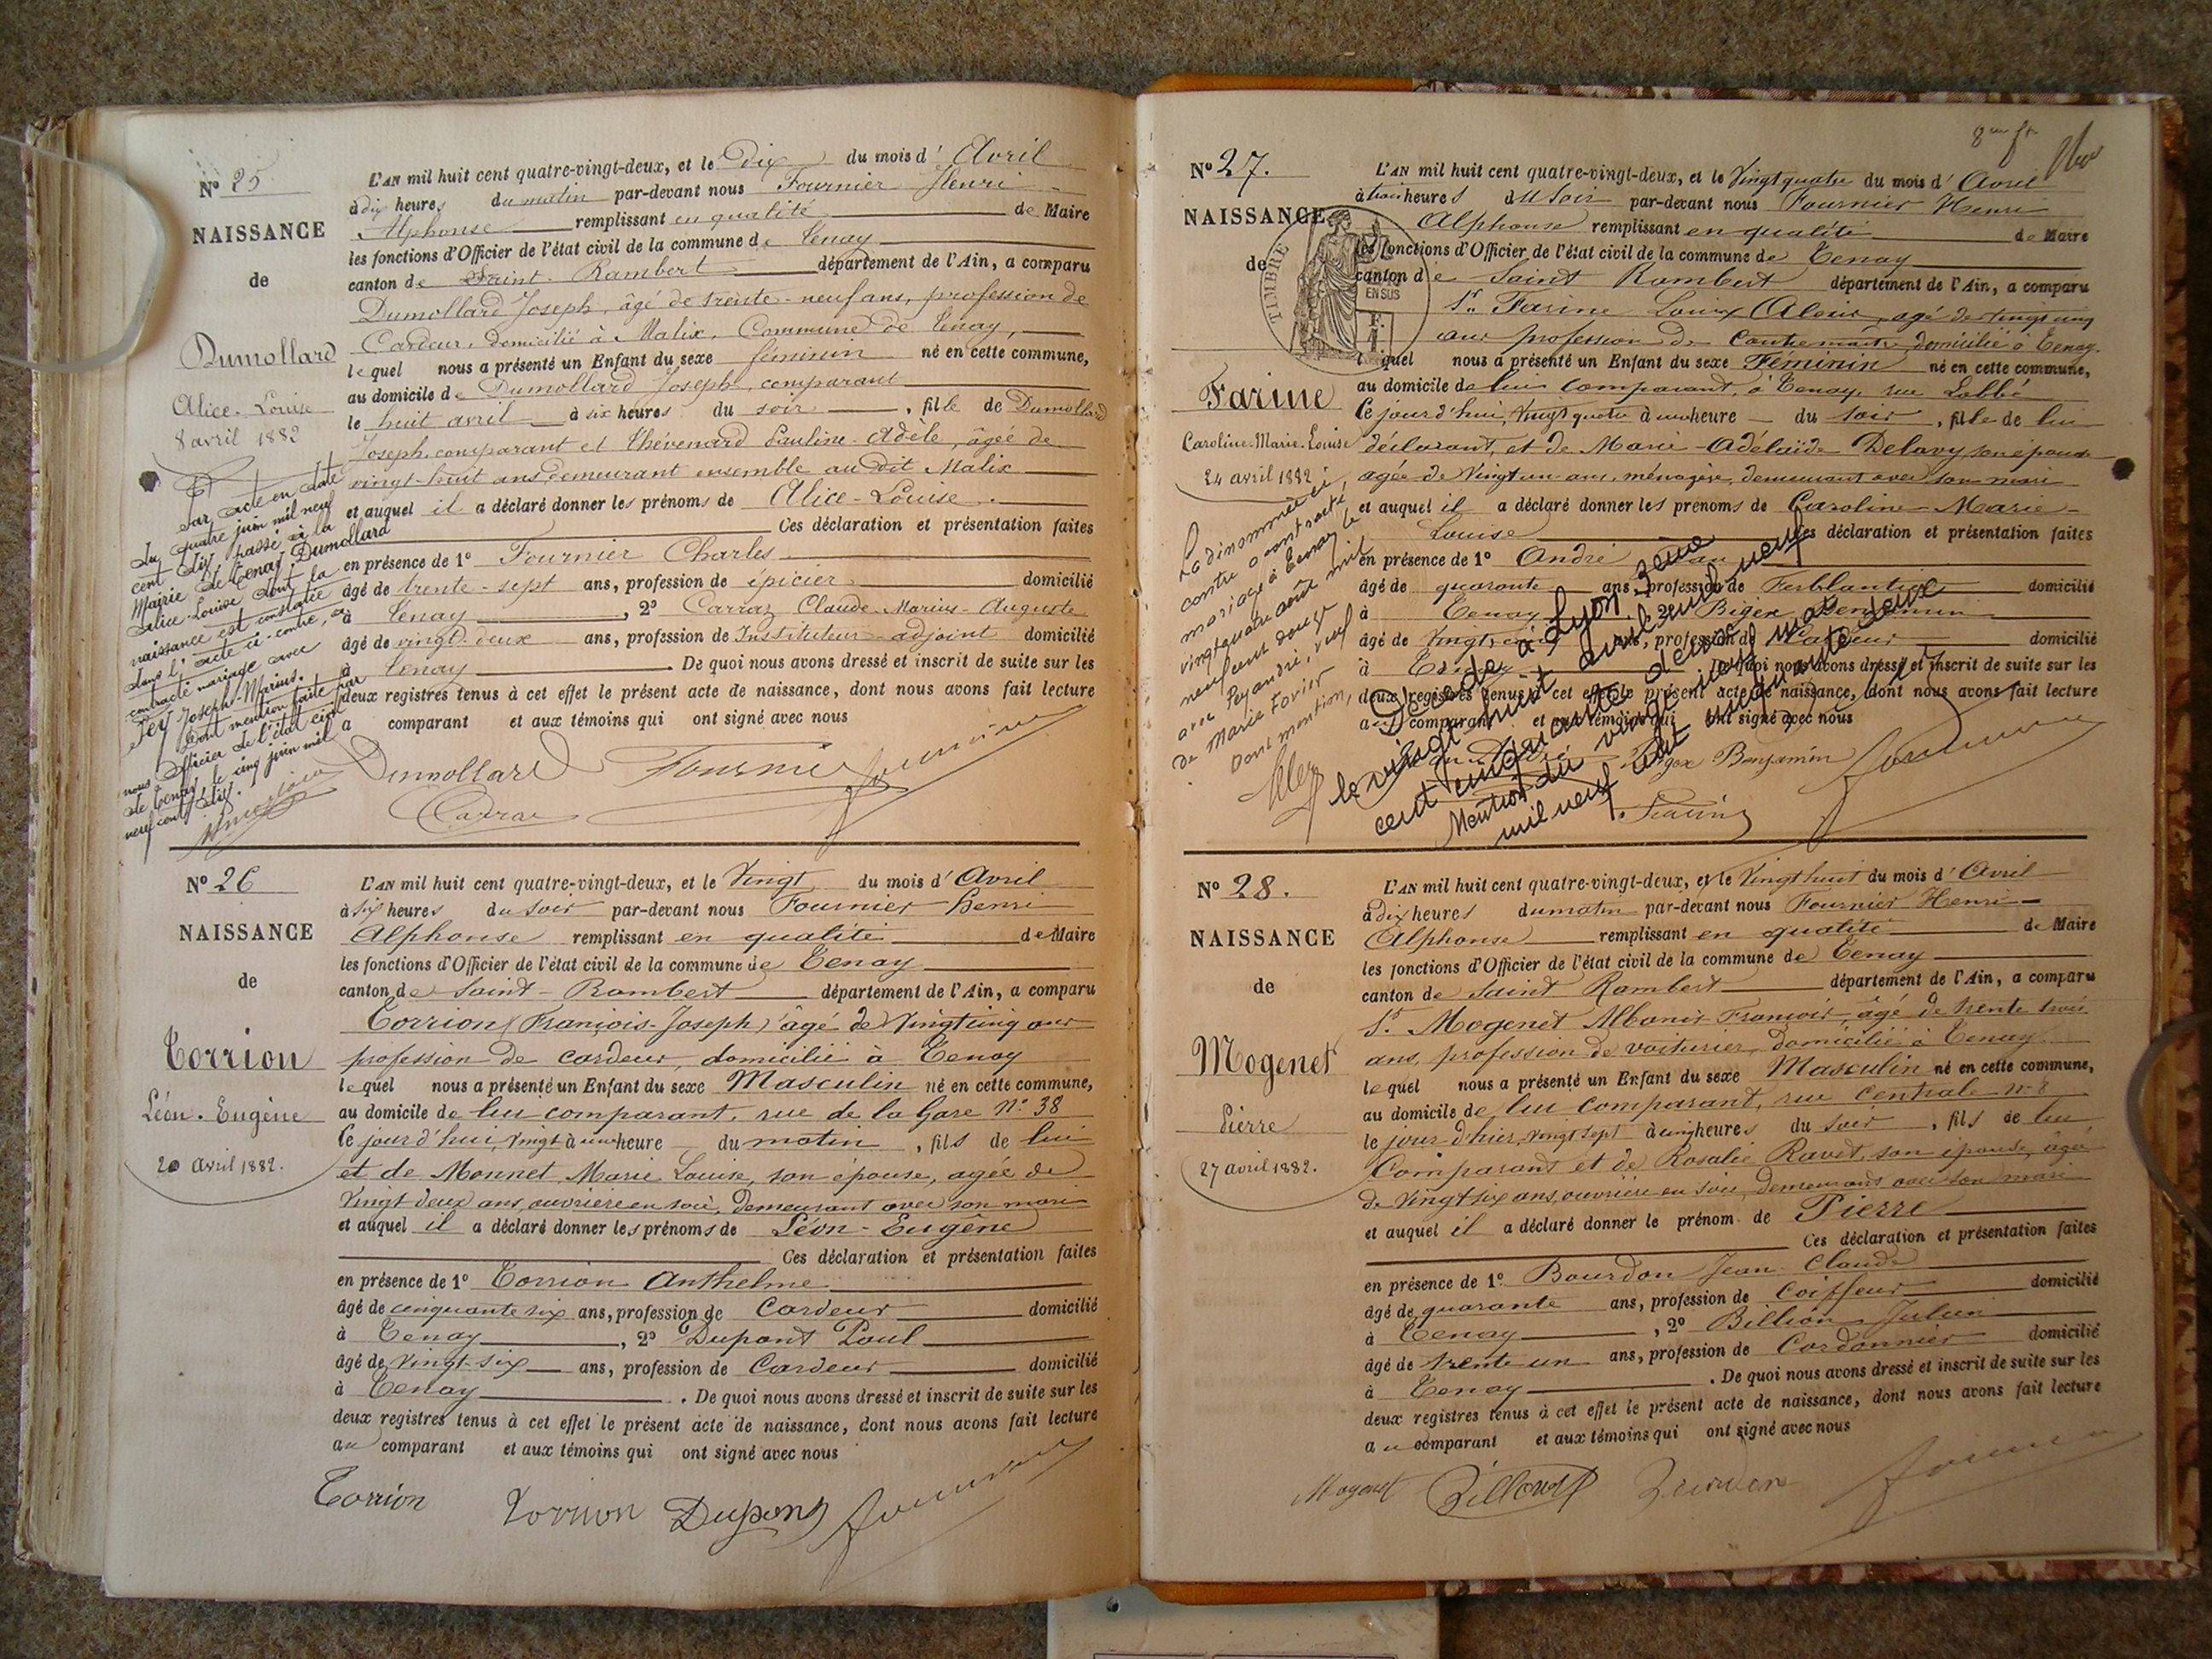 N° 25
NAISSANCE
de
Dumollard
Alice-Louise
8 avril 1882
Par acte en date
du quatre juin mil neuf
cent dix, passé à la
Mairie de Tenay, Dumollard
Alice-Louise dont la
naissance est constatée
dans l'acte ci-contre, a
contracté mariage avec
Pey Joseph-Marius.
Dont mention faite par
nous officier de l'état civil
de Tenay, le cinq juin mil
neuf cent dix.
L'AN mil huit cent quatre-vingt-deux, et le dix du mois d'Avril
à dix heures du matin par-devant nous Fournier Henri
Alphonse remplissant en qualité de Maire
les fonctions d'Officier de l'état civil de la commune de Tenay
canton de Saint-Rambert département de l'Ain, a comparu
Dumollard Joseph, âgé de trente-neuf ans, profession de
Cardeur, domicilié à Malix, Commune de Tenay,
lequel nous a présenté un Enfant du sexe féminin né en cette commune,
au domicile de Dumollard Joseph, comparant
le huit avril à six heures du soir, fille de Dumollard
Joseph, comparant et Thévenard Pauline-Adèle, âgée de
vingt-huit ans demeurant ensemble au dit Malix
et auquel il a déclaré donner les prénoms de Alice-Louise.
Ces déclaration et présentation faites
en présence de 1° Fournier Charles
âgé de trente-sept ans, profession de épicier domicilié
à Tenay, 2° Carraz Claude-Marius-Auguste
âgé de vingt-deux ans, profession de Instituteur-adjoint domicilié
à Tenay. De quoi nous avons dressé et inscrit de suite sur les
deux registres tenus à cet effet le présent acte de naissance, dont nous avons fait lecture
a comparant et aux témoins qui ont signé avec nous
Dumollard Fournier Fournier
Carraz
N° 26
NAISSANCE
de
Torrion
Léon-Eugène
20 avril 1882.
L'AN mil huit cent quatre-vingt-deux, et le Vingt du mois d'Avril
à six heures du soir par-devant nous Fournier Henri
Alphonse remplissant en qualité de Maire
les fonctions d'Officier de l'état civil de la commune de Tenay
canton de Saint-Rambert département de l'Ain, a comparu
Torrion (François-Joseph) âgé de Vingt cinq ans
profession de cardeur, domicilié à Tenay
lequel nous a présenté un Enfant du sexe Masculin né en cette commune,
au domicile de lui comparant, rue de la Gare N° 38
Ce jour d'hui, vingt à une heure du matin, fils de lui
et de Monnet Marie Louise, son épouse, agée de
Vingt deux ans, ouvrière en soie, demeurant avec son mari
et auquel il a déclaré donner les prénoms de Léon-Eugène
Ces déclaration et présentation faites
en présence de 1° Torrion Anthelme
âgé de cinquante six ans, profession de Cardeur domicilié
à Tenay, 2° Dupont Paul
âgé de Vingt-six ans, profession de Cardeur domicilié
à Tenay. De quoi nous avons dressé et inscrit de suite sur les
deux registres tenus à cet effet le présent acte de naissance, dont nous avons fait lecture
au comparant et aux témoins qui ont signé avec nous
Torrion Torrion Dupont Fournier
N° 27.
NAISSANCE
de
Farine
Caroline-Marie-Louise
24 avril 1882
La dénommée ci
contre a contracté
mariage à Tenay le
vingt quatre août mil
neuf cent douze
avec Peyandre, veuf
de Marie Forier
Dont mention,
TIMBRE
EN SUS
L'AN mil huit cent quatre-vingt-deux, et le Vingt quatre du mois d'Avril
à trois heures du soir par-devant nous Fournier Henri
Alphonse remplissant en qualité de Maire
les fonctions d'Officier de l'état civil de la commune de Tenay
canton de Saint Rambert département de l'Ain, a comparu
Sr. Farine Louis Alexis, agé de vingt cinq
ans profession de Contremaître, domicilié à Tenay.
lequel nous a présenté un Enfant du sexe Féminin né en cette commune,
au domicile de lui comparant, à Tenay, rue Labbé
Ce jour d'hui, Vingt quatre à une heure du soir, fille de lui
déclarant, et de Marie-Adélaïde Delavy son épouse
agée de Vingt un ans, ménagère, demeurant avec son mari
et auquel il a déclaré donner les prénoms de Caroline-Marie-
Louise Ces déclaration et présentation faites
en présence de 1° André
âgé de quarante ans, profession de Ferblantier domicilié
à Tenay, 2° Bigex Benjamin
âgé de Vingt ans, profession de Cardeur domicilié
à Tenay De quoi nous avons dressé et inscrit de suite sur les
deux registres tenus à cet effet le présent acte de naissance, dont nous avons fait lecture
au comparant et aux témoins qui ont signé avec nous
Décédée à Lyon 3ème
le vingt huit avril mil neuf
cent cinquante deux
Mention du vingt neuf mai
mil neuf cent cinquante deux
André Bigex Benjamin Fournier
Farine
N° 28.
NAISSANCE
de
Mogenet
Pierre
27 avril 1882.
L'AN mil huit cent quatre-vingt-deux, et le Vingt huit du mois d'Avril
à dix heures du matin par-devant nous Fournier Henri
Alphonse remplissant en qualité de Maire
les fonctions d'Officier de l'état civil de la commune de Tenay
canton de Saint Rambert département de l'Ain, a comparu
Sr. Mogenet Albanis François âgé de trente trois
ans, profession de voiturier, domicilié à Tenay
lequel nous a présenté un Enfant du sexe Masculin né en cette commune,
au domicile de lui comparant, rue Centrale N° 8
le jour d'hier, vingt sept à cinq heures du soir, fils de lui
Comparant et de Rosalie Ravet, son épouse, agée
de Vingt six ans, ouvrière en soie, demeurant avec son mari
et auquel il a déclaré donner le prénom de Pierre
Ces déclaration et présentation faites
en présence de 1° Bourdon Jean Claude
âgé de quarante ans, profession de Coiffeur domicilié
à Tenay, 2° Billion Julien
âgé de trente un ans, profession de Cordonnier domicilié
à Tenay. De quoi nous avons dressé et inscrit de suite sur les
deux registres tenus à cet effet le présent acte de naissance, dont nous avons fait lecture
au comparant et aux témoins qui ont signé avec nous
Mogenet Billion Bourdon Fournier